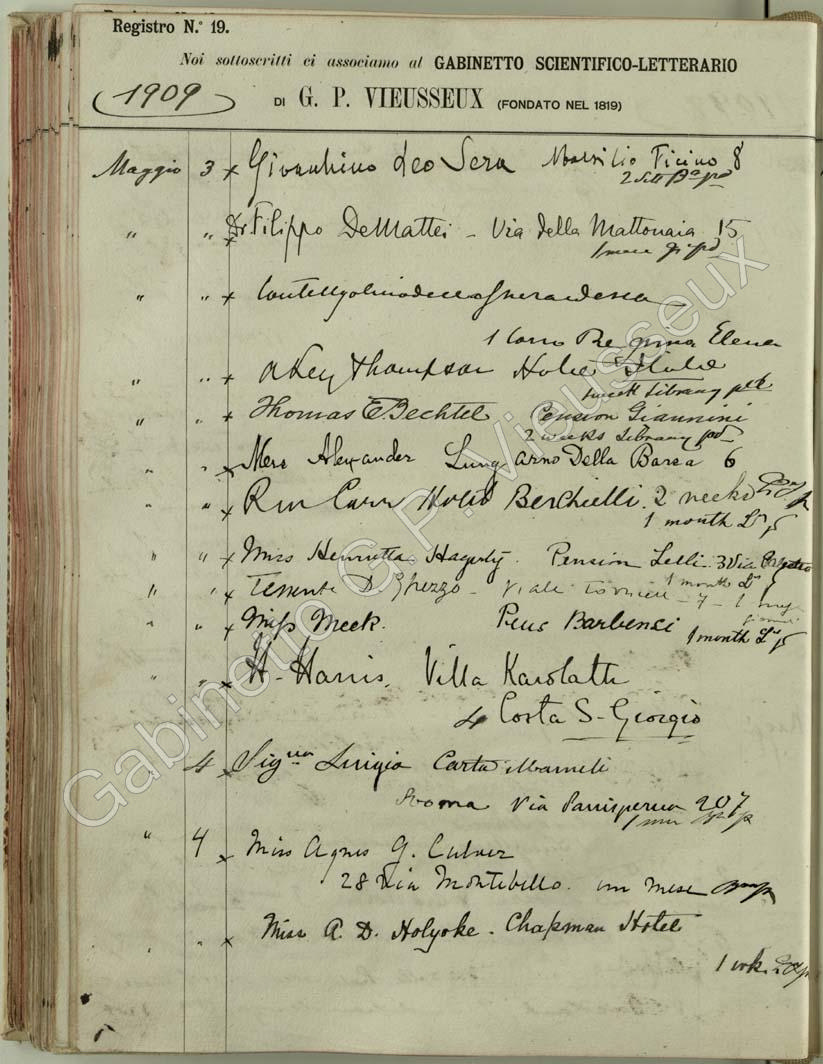 Registro N.° 19.
Noi sottoscritti ci associamo al GABINETTO SCIENTIFICO-LETTERARIO
1909
DI G. P. VIEUSSEUX (FONDATO NEL 1819)
Maggio 3 x Giovacchino deo Sera Marsilio Ficino 8
2 Sett
" " x Dr Filippo DeMattei - Via della Mattonaia 15
1 mese
" " x
1 Corso Regina Elena
" " x Thompson Hotel Italie
1 week Library pd
" " x Thomas E Bechtel Pension Giannini
2 weeks Library pd
" " x Mers Alexander Lung Arno Della Borsa 6
" " x Carr Hotel Berchielli. 2 weeks
1 month
" " x Miss Henrietta Hagerty. Pension Lelli. 3 Via
1 month
" " x Tenente D. Ghezzo - Viale - 7 - 1
" " x Miss Meek. Pens Barbensi
1 month
" " x H. Harris, Villa Karolath
4 Costa S. Giorgio
" 4 x Sigra Luigia Carta Mameli
Roma Via Panisperna 207
1 mese
" 4 x Miss Agnes G. Culver
28 Via Montebello. un mese
" " x Miss A. D. Holyoke. Chapman Hotel
1 wk.
Gabinetto G. P. Vieusseux